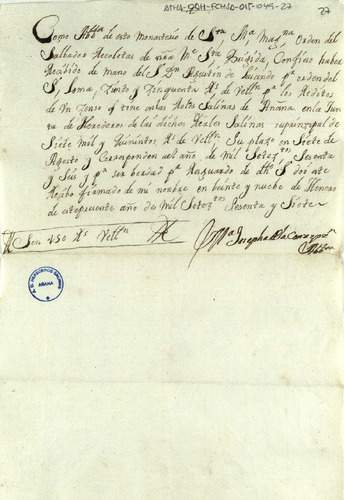 ATHA-DSH-FCHIC-015-045-27
27
Como Abb.a de este Monasterio de S.or S.n Orden del
Salbador Recoletas de ñra M.e S.ta Brigida, Confieso haber
Recibido de mano del S.r D.n Agustin de p.r orden del
S.r Lema, Ziento y Zinquenta R.s de Vell.n p.r los Reditos
de Un Zenso q.e tiene en las Rales Salinas de Añana, en la Jun
ta de Herederos de las dichas Reales Salinas su prinzipal de
Siete Mil y Quinientos R.s de Vell.n Su plazo en Siete de
Agosto y Corresponden al año de Mil Setez.tos Sesenta
y Seis y p.a ser berdad y p.a Resguardo de dho S.r doi este
Recibo firmado de mi nombre en beinte y nuebe de Henero
de este presente año de Mil Setez.tos Sesenta y Siete
Son 150 R.s Vell.n
Josepha de la Concepz.n
Abb.a
AÑANA